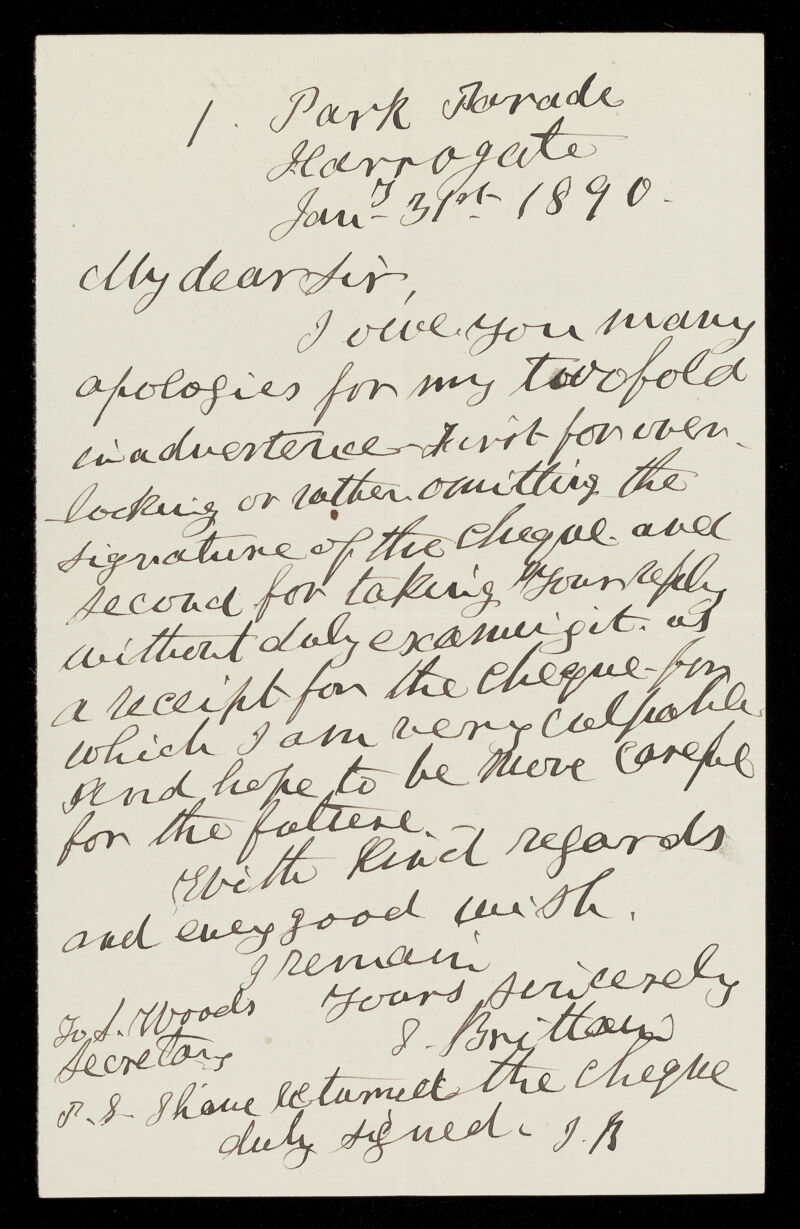 1. Park Parade
Harrogate
Jany 31st 1890.
My dear Sir,
I owe you many
apologies for my twofold
inadvertence - First for over-
looking or rather omitting the
signature of the cheque and
second for taking your reply
without duly examinig it. as
a receipt for the cheque - for
which I am very culpable
And hope to be more careful
for the future. -
With Kind regards
and every good wish.
I remain
Yours sincerely
To S. Woods
J. Brittain
Secretary
P.S. I have returned the cheque
duly signed. J. B